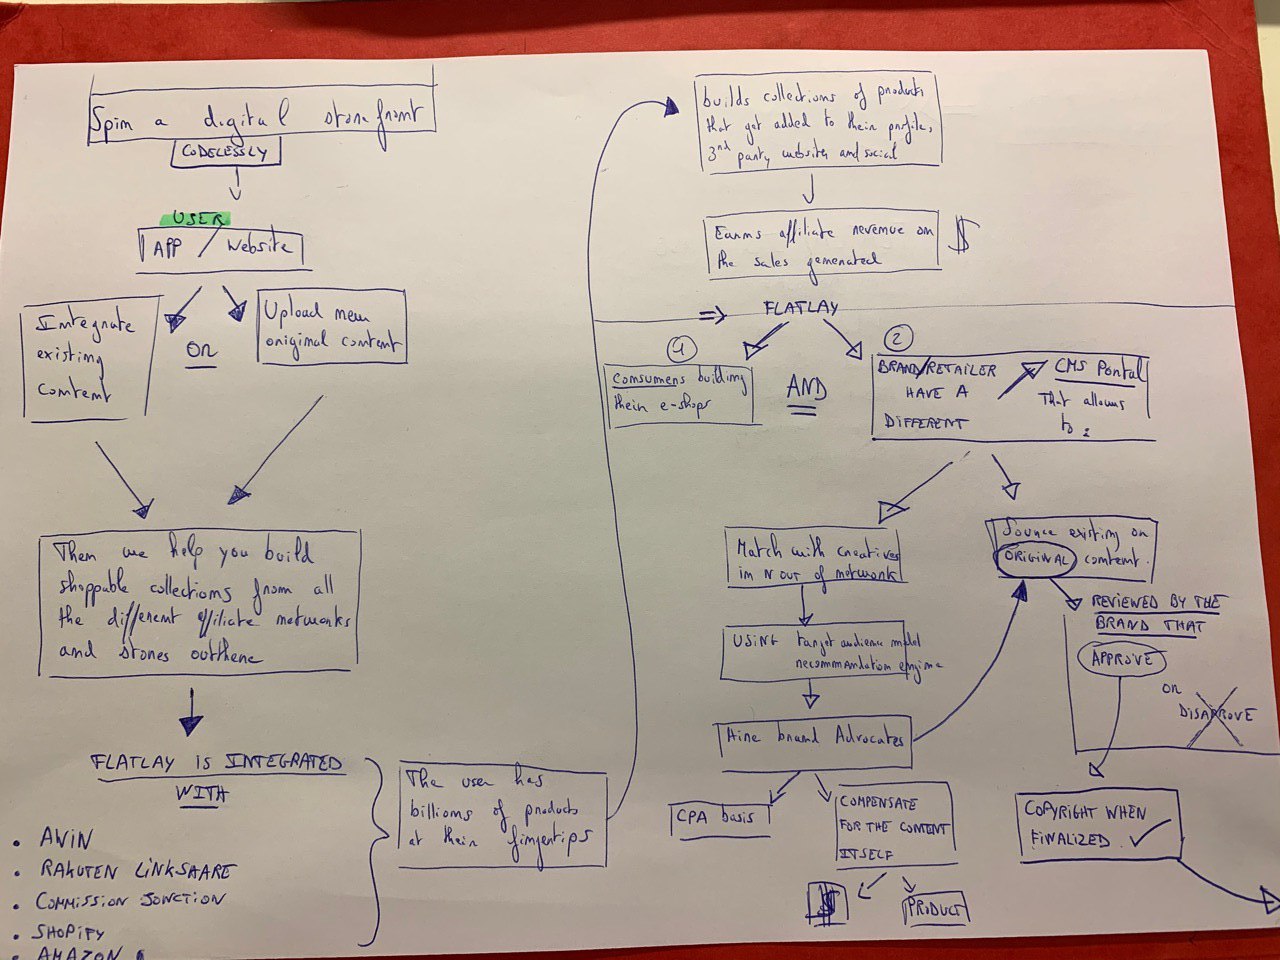 Spin a digital storefront
CODELESSLY
USER
APP / Website
Integrate
existing
content
OR
Upload new
original content
Then we help you build
shoppable collections from all
the different affiliate networks
and stores outthere
FLATLAY IS INTEGRATED
WITH
• AWIN
• RAKUTEN LINKSHARE
• COMMISSION JONCTION
• SHOPIFY
• AMAZON
The user has
billions of products
at their fingertips
builds collections of products
that get added to their profile,
3rd party websites and social
Earns affiliate revenue on
the sales generated
$
⇒ FLATLAY
1
Consumers building
their e-shops
AND
2
BRAND/RETAILER
HAVE A
DIFFERENT
CMS Portal
That allows
to :
Match with creatives
in N out of network
USING target audience model
recommandation engine
Hire brand Advocates
CPA basis
COMPENSATE
FOR THE CONTENT
ITSELF
$
PRODUCT
Source existing or
ORIGINAL content.
REVIEWED BY THE
BRAND THAT
APPROVE
OR
DISAPROVE
COPYRIGHT WHEN
FINALIZED ✓